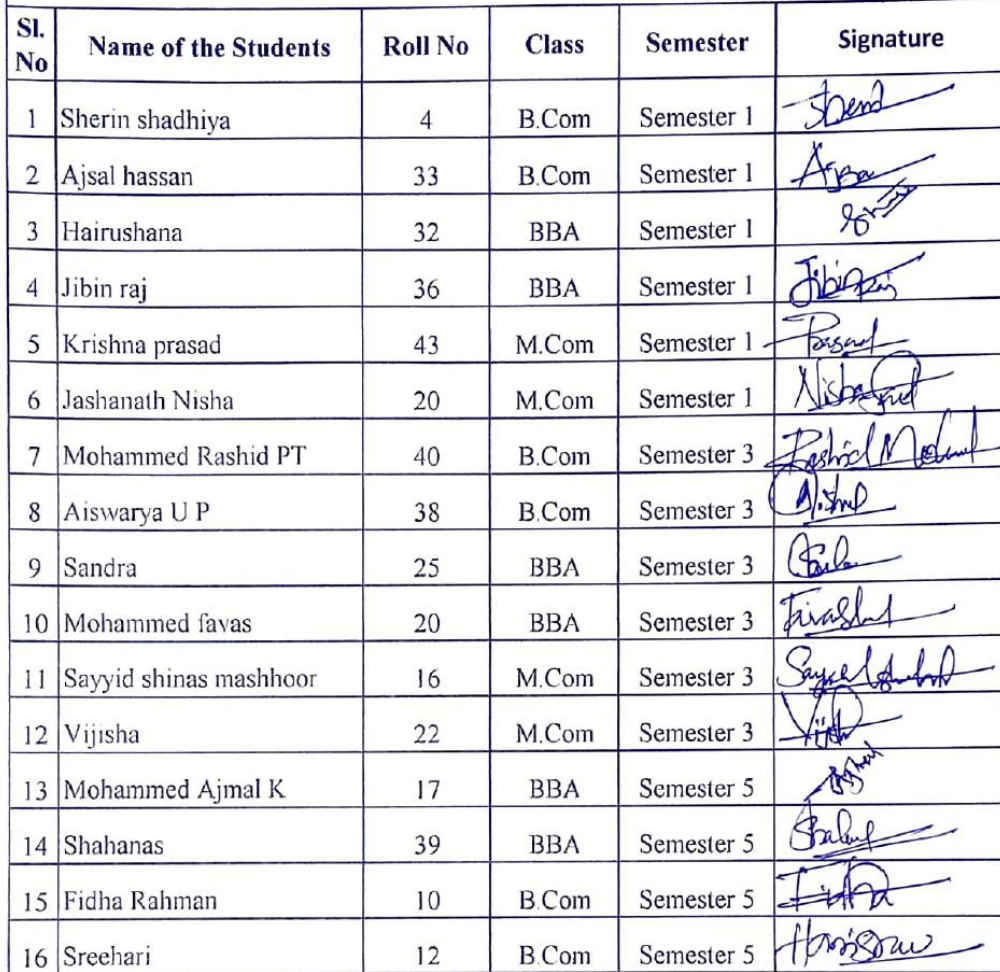 Sl. No Name of the Students Roll No Class Semester Signature
1 Sherin shadhiya 4 B.Com Semester 1
2 Ajsal hassan 33 B.Com Semester 1
3 Hairushana 32 BBA Semester 1
4 Jibin raj 36 BBA Semester 1 Jibin Raj
5 Krishna prasad 43 M.Com Semester 1
6 Jashanath Nisha 20 M.Com Semester 1
7 Mohammed Rashid PT 40 B.Com Semester 3
8 Aiswarya U P 38 B.Com Semester 3
9 Sandra 25 BBA Semester 3
10 Mohammed favas 20 BBA Semester 3
11 Sayyid shinas mashhoor 16 M.Com Semester 3
12 Vijisha 22 M.Com Semester 3
13 Mohammed Ajmal K 17 BBA Semester 5
14 Shahanas 39 BBA Semester 5
15 Fidha Rahman 10 B.Com Semester 5 Fidha
16 Sreehari 12 B.Com Semester 5